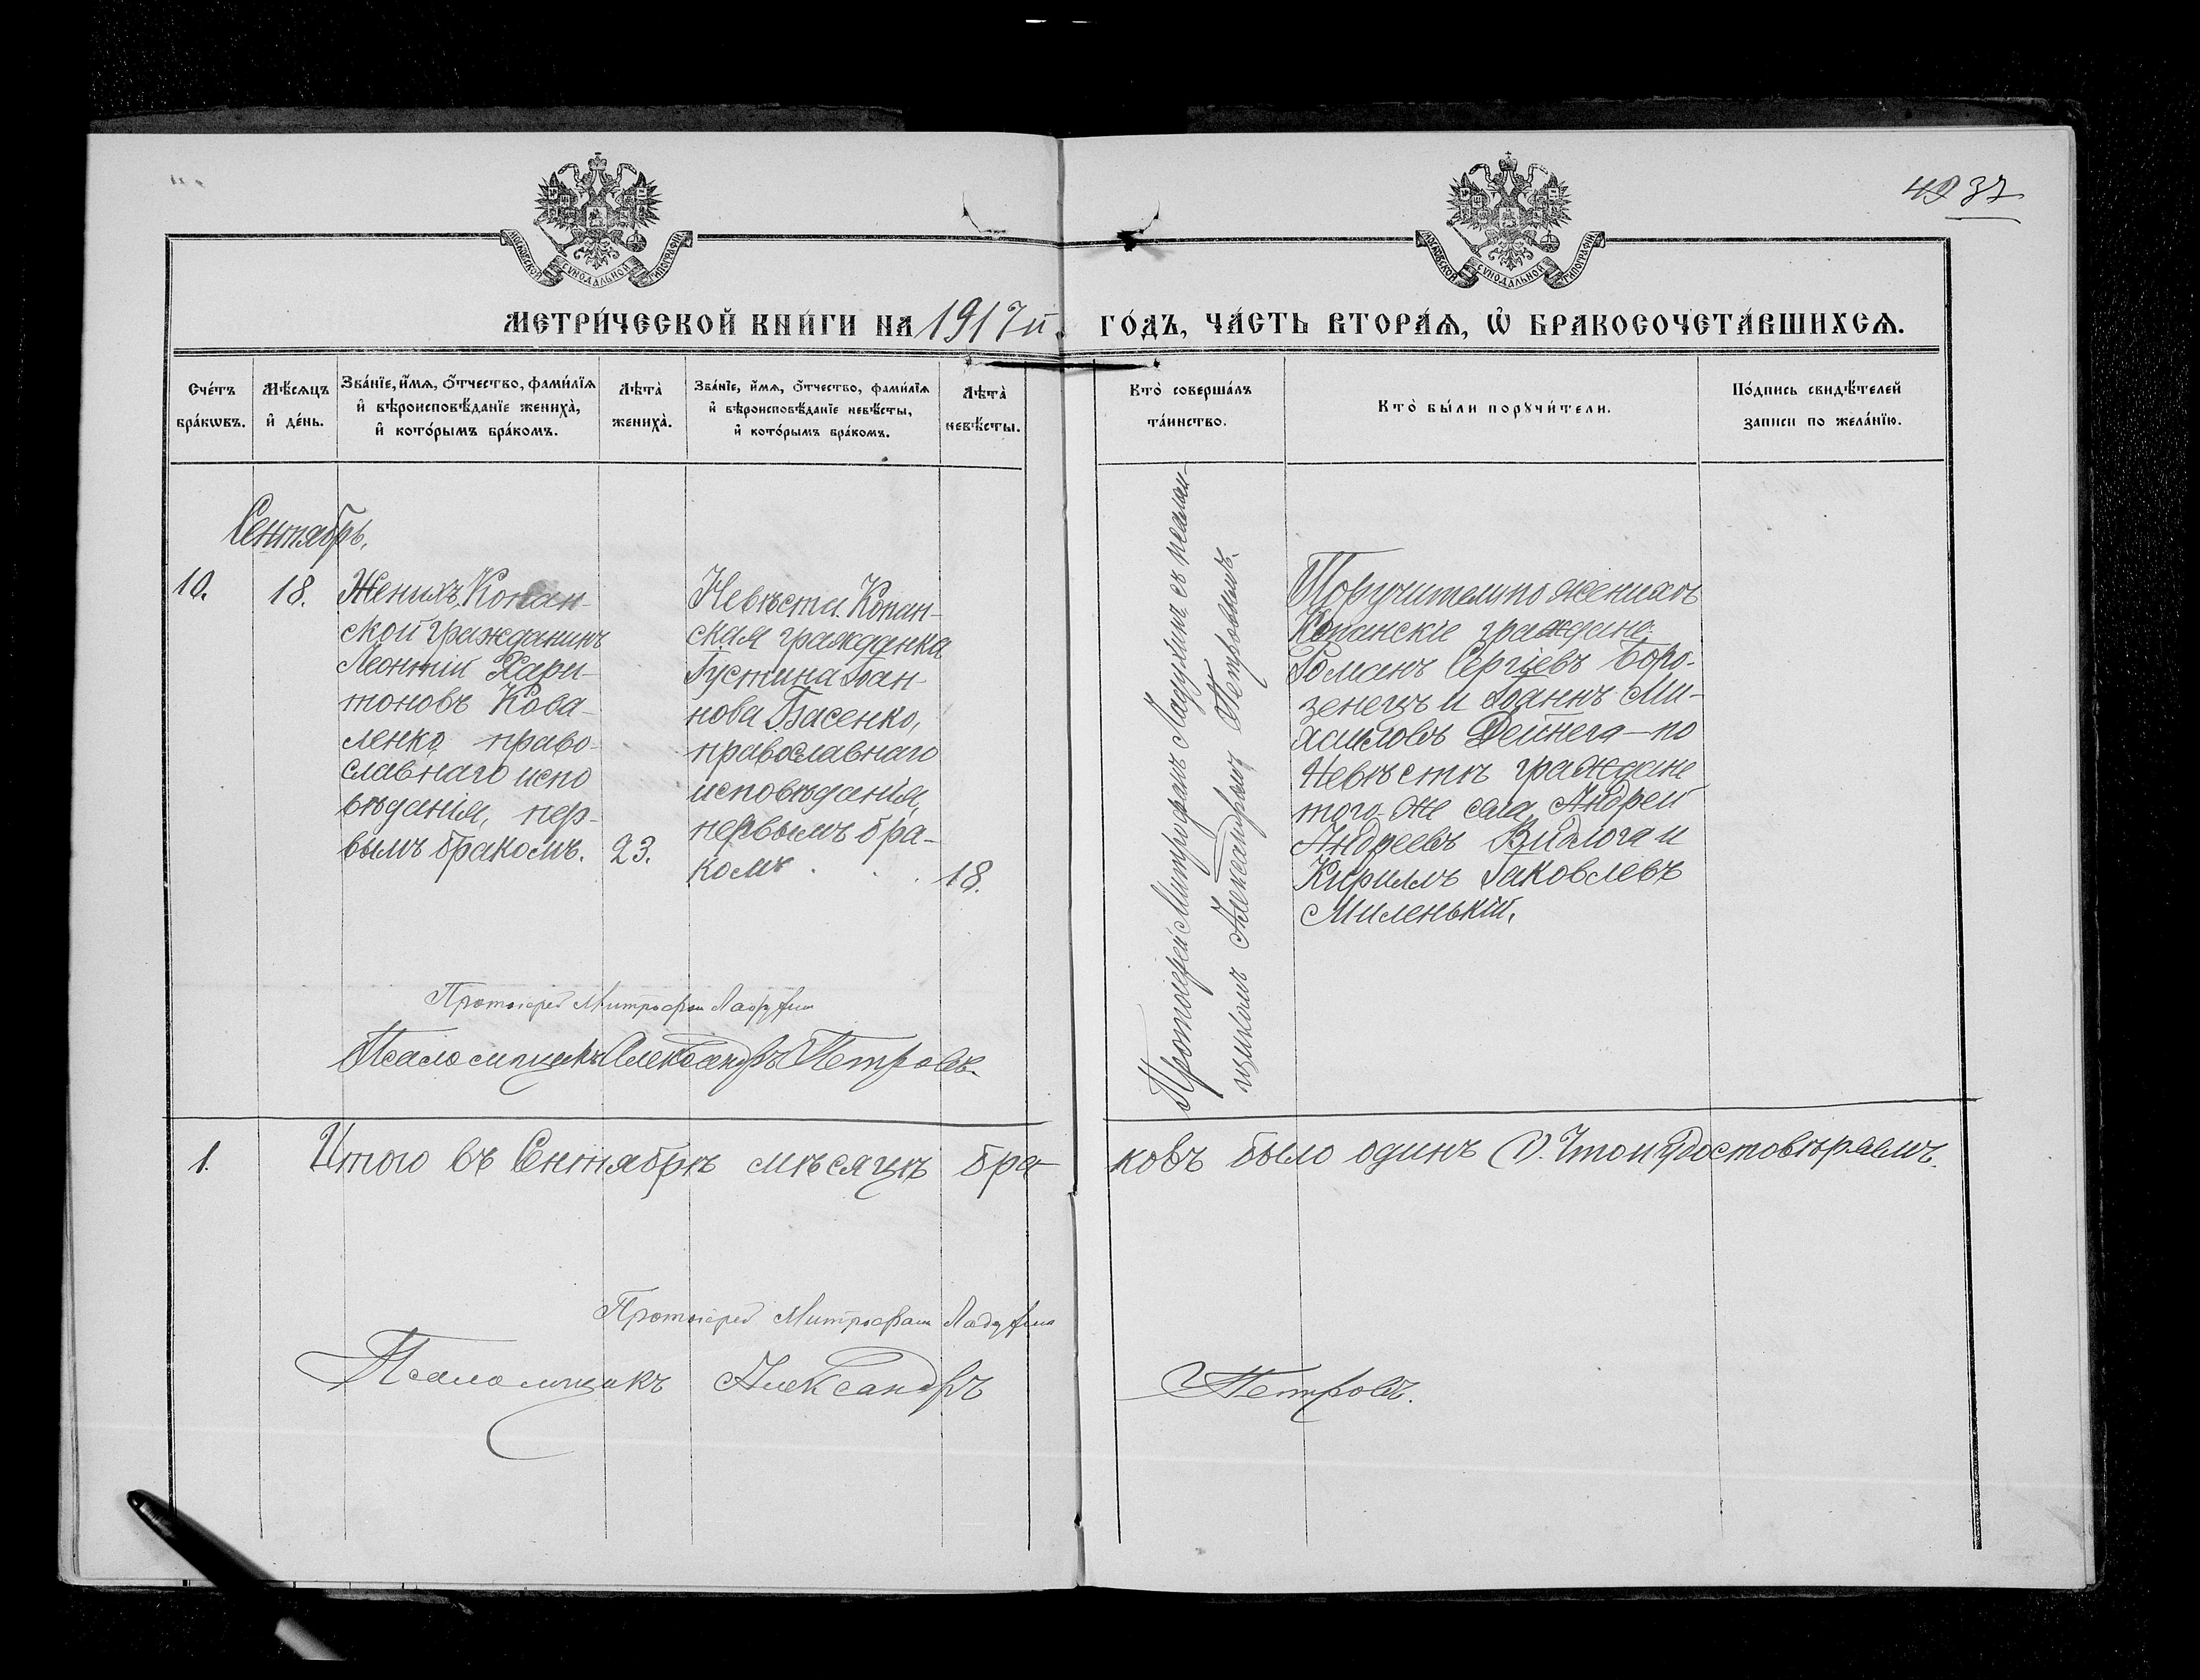 МОСКОВСКОЙ СѴНОДАЛЬНОЙ ТИПОГРАФІИ
МОСКОВСКОЙ СѴНОДАЛЬНОЙ ТИПОГРАФІИ
37
МЕТРИ́ЧЕСКОЙ КНИ́ГИ НА 1917 й. ГО́ДЪ, ЧА́СТЬ ВТОРА́Ѧ, Ѡ҆ БРАКОСОЧЕТА́ВШИХСѦ.
Сче́тъ
бра́кѡвъ.
Мѣ́сѧцъ
и҆ де́нь.
Зва́нїе, и҆́мѧ, ѻ҆́тчество, фами́лїѧ
и҆ вѣроисповѣ́данїе жениха̀,
и҆ кото́рымъ бра́комъ.
Лѣта̀
жениха̀.
Зва́нїе, и҆́мѧ, ѻ҆́тчество, фами́лїѧ
и҆ вѣроисповѣ́данїе невѣ́сты,
и҆ кото́рымъ бра́комъ.
Лѣта̀
невѣ́сты.
Кто̀ соверша́лъ
та́инство.
Кто̀ бы́ли порꙋчи́тели.
По́дпись свидѣ́телей
записи по жела́нїю.
Сентябрь.
10.
18.
Женихъ, Копан-
ской гражданинъ
Леонтій Хари-
тоновъ Кова-
ленко, право-
славнаго испо
вѣданія, пер-
вымъ бракомъ.
23.
Невѣста. Копан-
ская гражданка
Іустина Іоан-
нова Басенко,
православнаго
исповѣданія,
первымъ бра-
комъ
18.
Протоіерей Митрофанъ Ладухинъ съ псалом-
щикомъ Александромъ Петровымъ.
Поручители: по женихѣ
Копанскіе граждане
Романъ Сергіевъ Боро-
зенецъ и Іоаннъ Ми-
хаиловъ Дейнега – по
Невѣстѣ граждане
того-же села Андрей
Андреевъ
Кириллъ Іаковлевъ
Миленькій.
Протоіерей Митрофанъ Ладухин
Псаломщикъ Александръ Петровъ.
1.
Итого въ Сентябрѣ мѣсяцѣ бра-
ковъ было одинъ (1). Что и удостовѣряемъ.
Протоіерей Митрофанъ Ладухин
Псаломщикъ Александръ Петровъ.